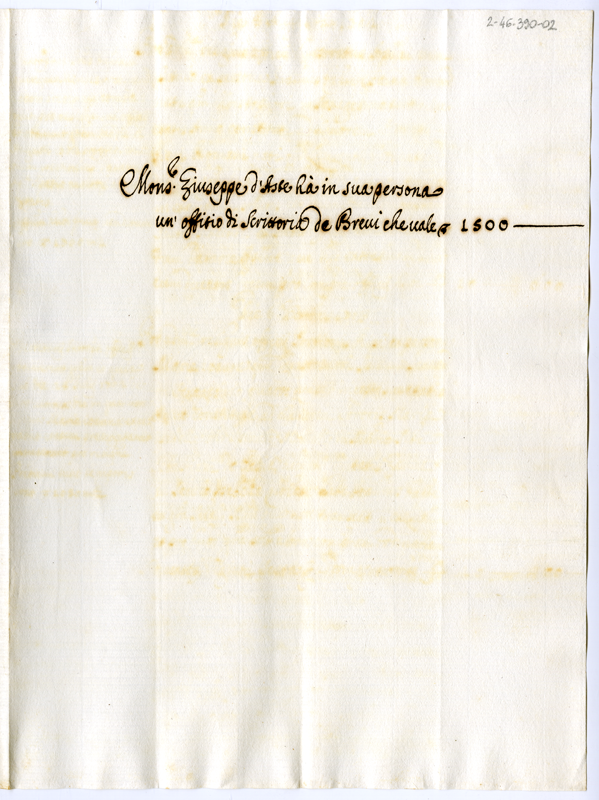 2-46-390-02
Mons.r Giuseppe d'Aste hà in sua persona
un' offitio di Scrittoria de Brevi che vale 1500